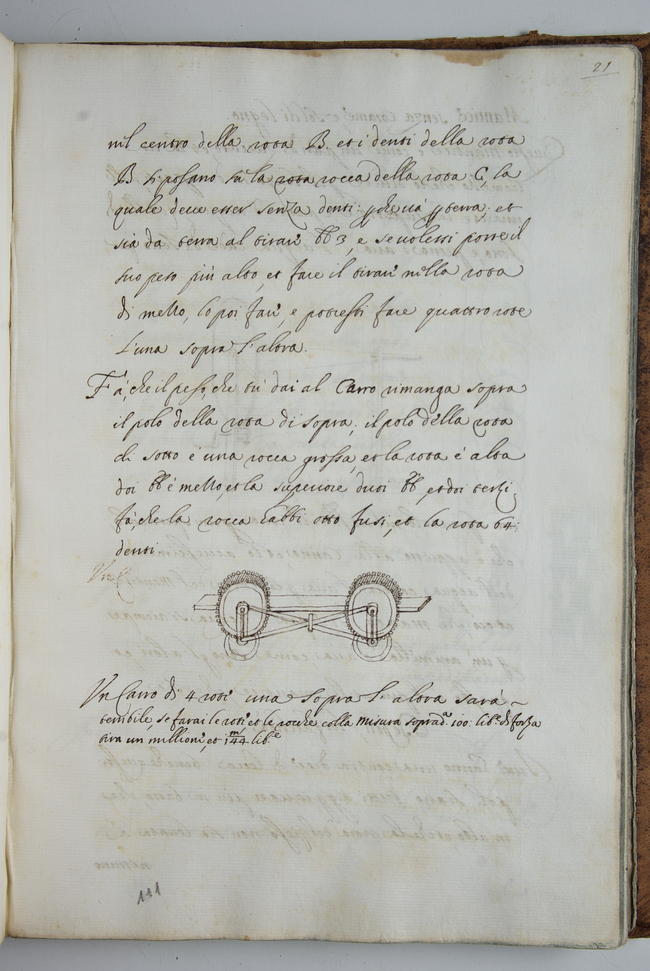 21
nel centro della rota B. et i denti della rota
B si posano sù la rota rocca della rota C, la
quale deve esser senza denti: che và terra, et
sia da terra al tirar 3, e se volessi porre il
suo peso più alto, et fare il tirar nella rota
di mezzo, lo poi far, e potresti fare quattro rote
l'una sopra l'altra.
Fà, che il peso, che tù dai al Carro rimanga sopra
il polo della rota di sopra, il polo della rota
di sotto è una rocca grossa, et la rota è alta
doi è mezzo, et la superiore duoi, et doi terzi,
fà, che la rocca habbi otto fusi, et la rota 64
denti
Un Carro di 4 roti una sopra l'altra sarà
terribile, se farai le roti et le rocche colla misura soprad.ª 100: lib.e di forza
tira un millioni, et 144 lib.e
111